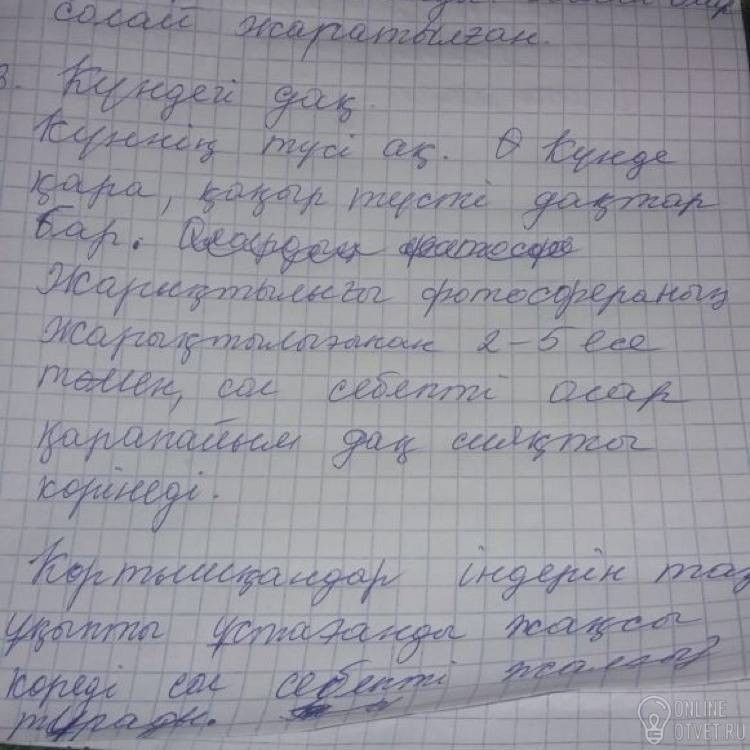 солай жаратылған.
3. Күндегі дақ.
Күннің түсі ақ. Күнде
қара, қоңыр түсті дақтар
бар. Олардың фатосфе
Жарықтылығы фотосфераның
жарықтылығынан 2-5 есе
төмен, сол себепті олар
қарапайым дақ сияқты
көрінеді.
Кортышқандар індерін таз
ұқыпты ұстағанды жақсы
көреді сол себепті жалғыз
тұрады.
ONLINE
OTVET.RU